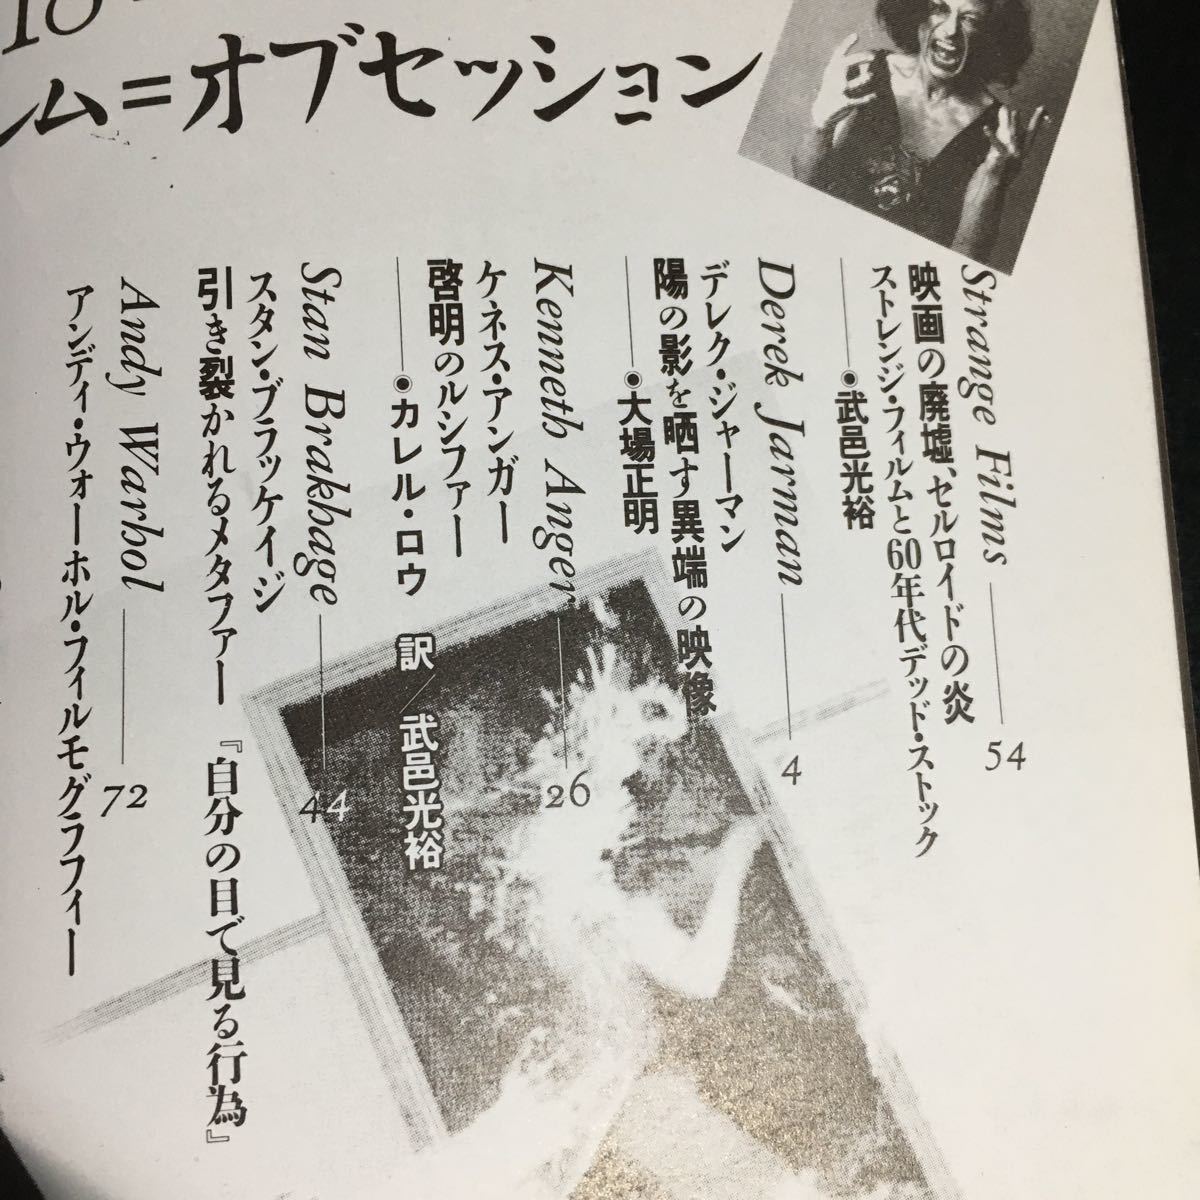 18
ム=オブセッション
Strange Films 54
映画の廃墟、セルロイドの炎
ストレンジ・フィルムと60年代デッド・ストック
●武邑光裕
Derek Jarman 4
デレク・ジャーマン
陽の影を晒す異端の映像
●大場正明
Kenneth Anger 26
ケネス・アンガー
啓明のルシファー
●カレル・ロウ 訳/武邑光裕
Stan Brakhage 44
スタン・ブラッケイジ
引き裂かれるメタファー『自分の目で見る行為』
Andy Warhol 72
アンディ・ウォーホル・フィルモグラフィー